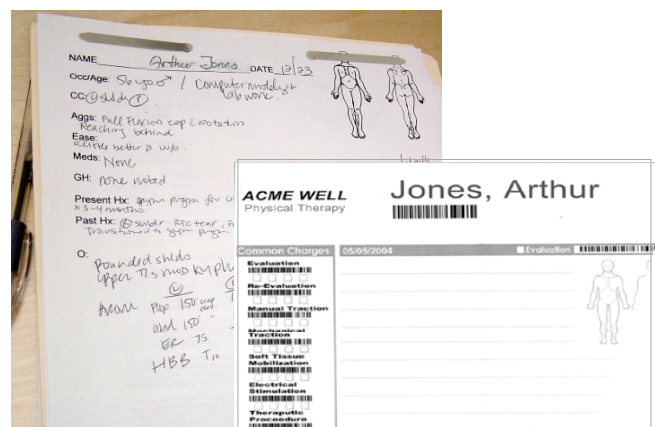 NAME Arthur Jones DATE 12/23
Occ/Age: 56 yo ♂ / Computer modeling +
lab work.
CC
Aggs: Full Flexion
Reaching behind
Ease:
a little better
Meds: None
GH: none noted
Present Hx: gym prgm for
x 3-4 months
Past Hx: RTC tear,
transitioned to gym prgm
O:
Rounded shlds
upper T/s mod kyph
Arom Flex 150°
abd 150°
ER 75
HBB T10
ACME WELL
Physical Therapy
Jones, Arthur
Common Charges 05/05/2004 Evaluation
Evaluation
Re-Evaluation
Manual Traction
Mechanical
Traction
Soft Tissue
Mobilization
Electrical
Stimulation
Theraputic
Proceedure